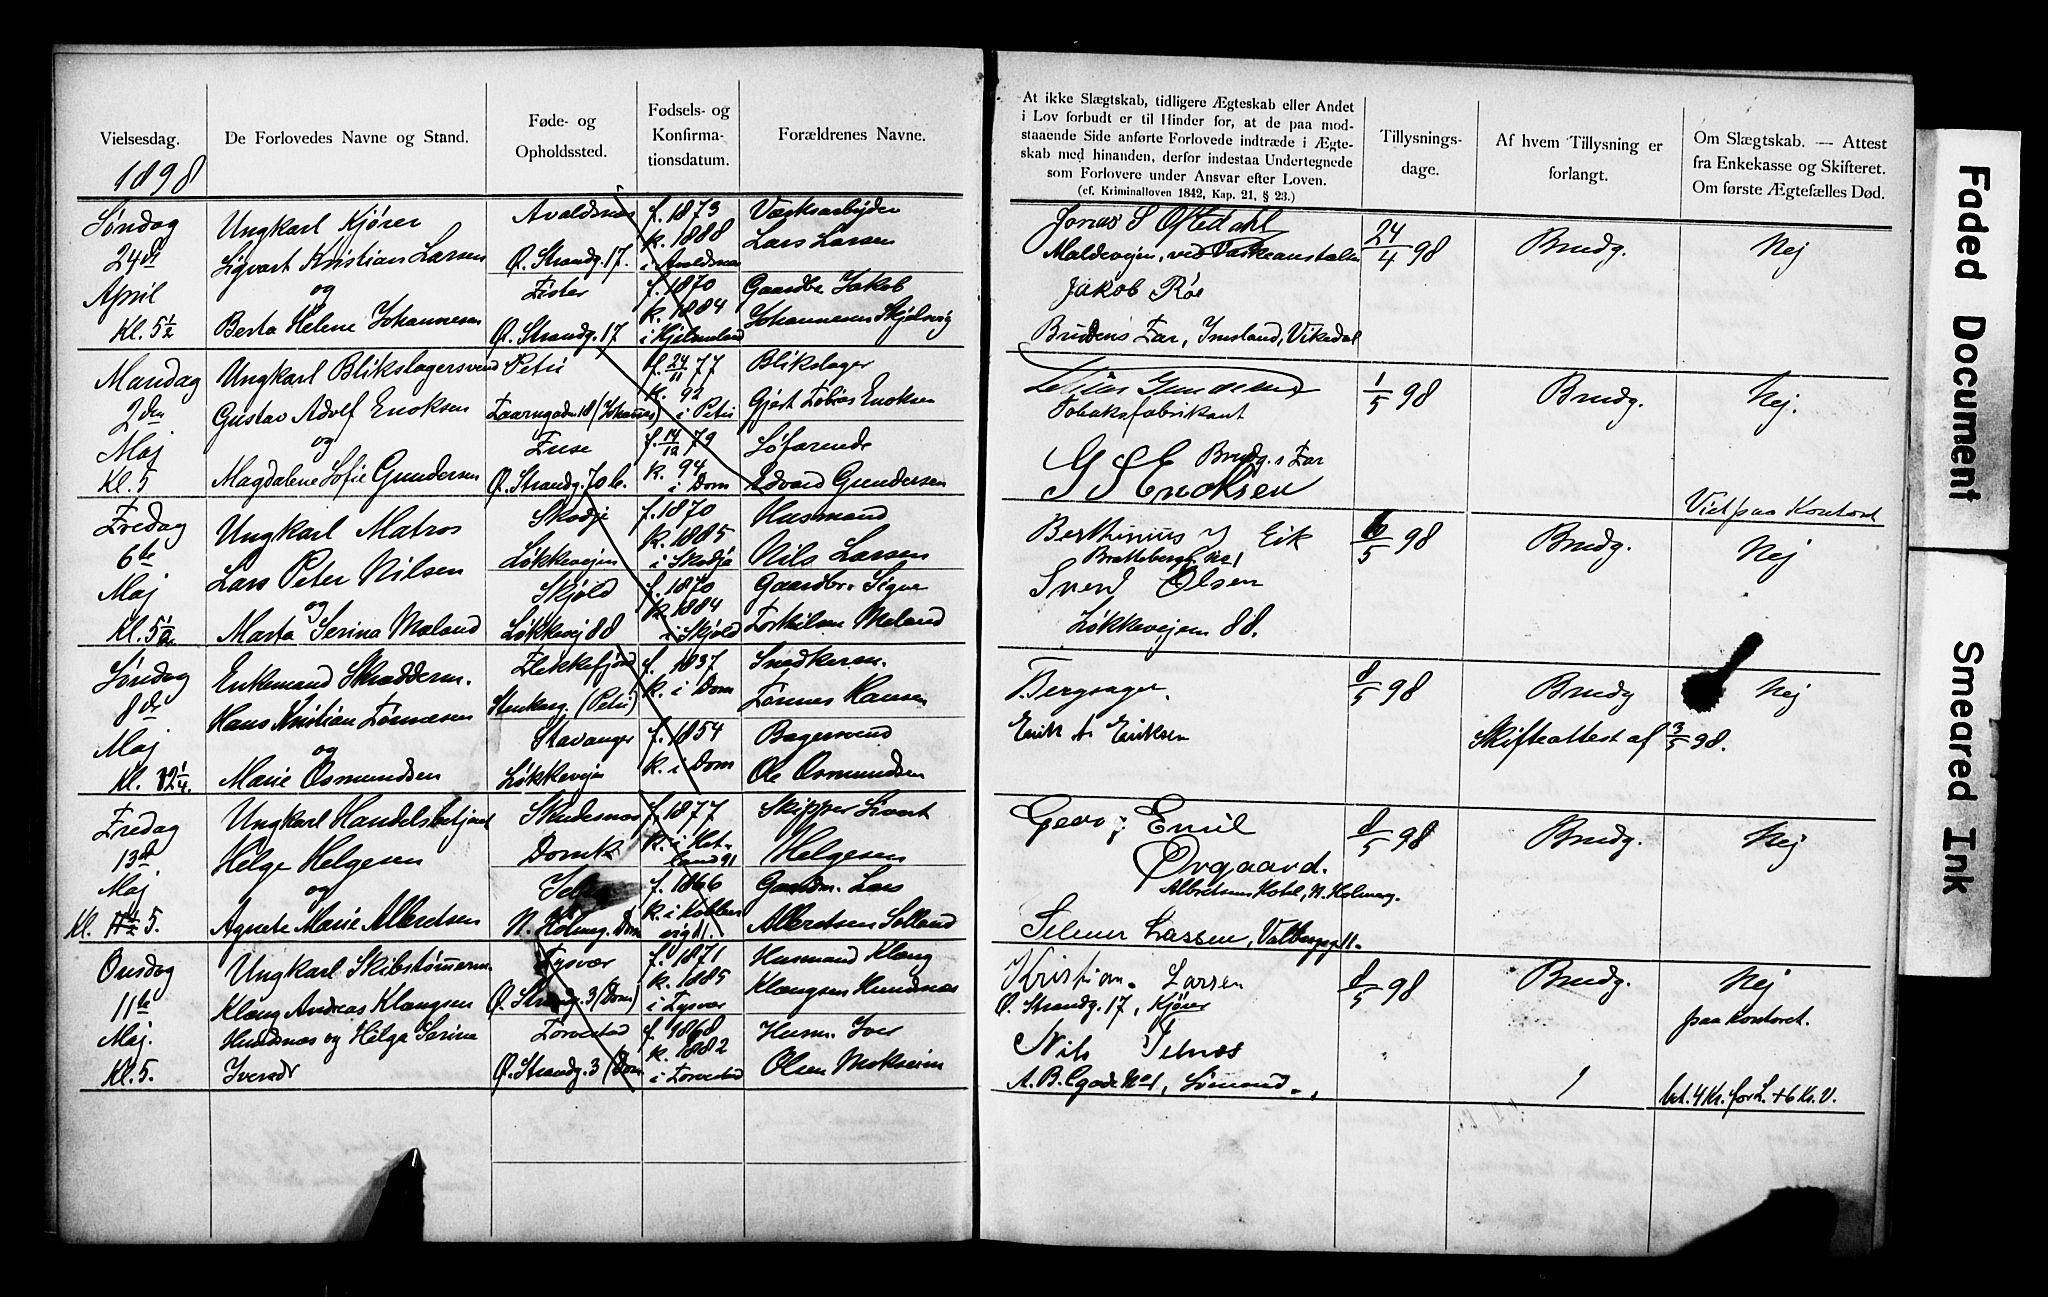 Vielsesdag.
1898
De Forlovedes Navne og Stand.
Føde- og
Opholdssted.
Fødsels- og
Konfirma-
tionsdatum.
Forældrenes Navne.
Søndag
24de
April
Kl. 5½
Ungkarl Kjører
Sigvart Kristian Larsen
og
Berta Helene Johannesen
Avaldsnes
Ø. Strandg. 17.
Ø. Strandg. 17
f. 1873
k. 1888
i Avaldsnes
f. 1870
k. 1884
i Hjelmeland
Lars Larsen
Gaardbr. Jakob
Johannesen Skjølsvig
Mandag
2den
Maj
Kl. 5
Ungkarl Blikslagersvend
Gustav Adolf Enoksen
og
Magdalene Sofie Gundersen
Petri
Faarngaden 18 (Johannes)
Fuse
Ø. Strandg. 70 b.
f. 24/11 77
k. 92
i Petri
f. 14/12 79
k. 94
i Dom
Blikslager
Gjert Tobias Enoksen
Søfarende
Edvard Gundersen
Fredag
6te
Maj
Kl. 5½
Ungkarl Matros
Lars Peter Nilsen
og
Marta Serina Mæland
Skodje
Løkkevejen
Skjold
Løkkevej 88
f. 1870
k. 1885
i Skodje
f. 1870
k. 1884
i Skjold
Husmand
Nils Larsen
Gaardbr. Signe
Torkilsen Mæland
Søndag
8de
Maj
Kl. 12¼.
Enkemand Skræderm.
Hans Kristian Tønnesen
og
Marie Osmundsen
Flekkefjord
Stenkarg. (Petri)
Stavanger
Løkkevejen
f. 1837
k. i Dom
f. 1854
k. i Dom
Snedkerm.
Tønnes Hansen
Bagersvend
Ole Osmundsen
Fredag
13de
Maj
Kl. 5.
Ungkarl Handelsbetjent
Helge Helgesen
og
Agnete Marie Albretsen
Skudesnes
Domk.
N. Holmeg. Dom
f. 1877
k. i Het-
land 91
f. 1866
k. i Kobber-
vig 81.
Skipper Sivert
Helgesen
Gaardm. Lars
Albretsen Solland
Onsdag
11te
Maj.
Kl. 5.
Ungkarl Skibstømmerm.
Klang Andreas Klangsen
Hundsnes og Helga Serina
Iversdr
Tysvær
Ø. Strandg. 3 (Dom)
Torvestad
Ø. Strandg. 3 (Dom)
f. 1871
k. 1885
i Tysvær
f. 1868
k. 1882
i Torvestad
Husmand Klang
Klangsen Hundsnæs
Husm. Iver
Olsen Moksheim
At ikke Slægtskab, tidligere Ægteskab eller Andet
i Lov forbudt er til Hinder for, at de paa mod-
staaende Side anførte Forlovede indtræde i Ægte-
skab med hinanden, derfor indestaa Undertegnede
som Forlovere under Ansvar efter Loven.
(cf. Kriminalloven 1842, Kap. 21, § 23.)
Tillysnings-
dage.
Af hvem Tillysning er
forlangt.
Om Slægtskab. — Attest
fra Enkekasse og Skifteret.
Om første Ægtefælles Død.
Jonas S Oftedahl
Maldevejen, ved Vaskeanstalten
Jakob Røe
Brudens Far, Imsland, Vikedal
24/4 98
Brudg.
Nej
Tobaksfabrikant
Brudg.s Far
G S Enoksen
1/5 98
Brudg.
Nej.
Viet paa Kontoret
Berthinius Eik
Sven Olsen
Løkkevejen 88.
5 98
Brudg.
Nej
T. Bergsager.
Erik A. Eriksen
8/5 98
Brudg
Skifteattest af 3/5 98.
Nej
Georg Emil
Ovgaard.
Albretsens Hotel, N. Holmeg.
Selmer Lassen, Valbergg 11.
8/5 98
Brudg.
Nej
Kristian Larsen
Ø. Strandg. 17, Kjører
Nils
8/5 98
Brudg.
Nej
paa kontoret.
bet. 4 Kr. for L. + 6 Kr. V.
Faded Document
Smeared Ink